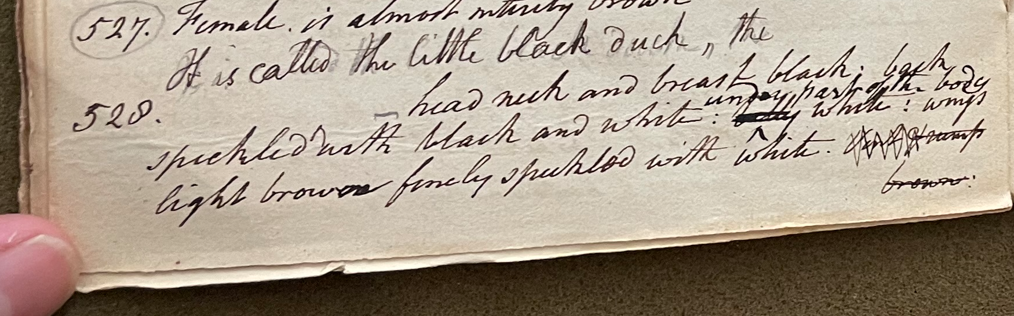 527. Female. is almost entirely brown
It is called the little black duck, the
528. head neck and breast black; back
speckled with black and white: under part of the body white: wings
light brown finely speckled with white. rump
brown.